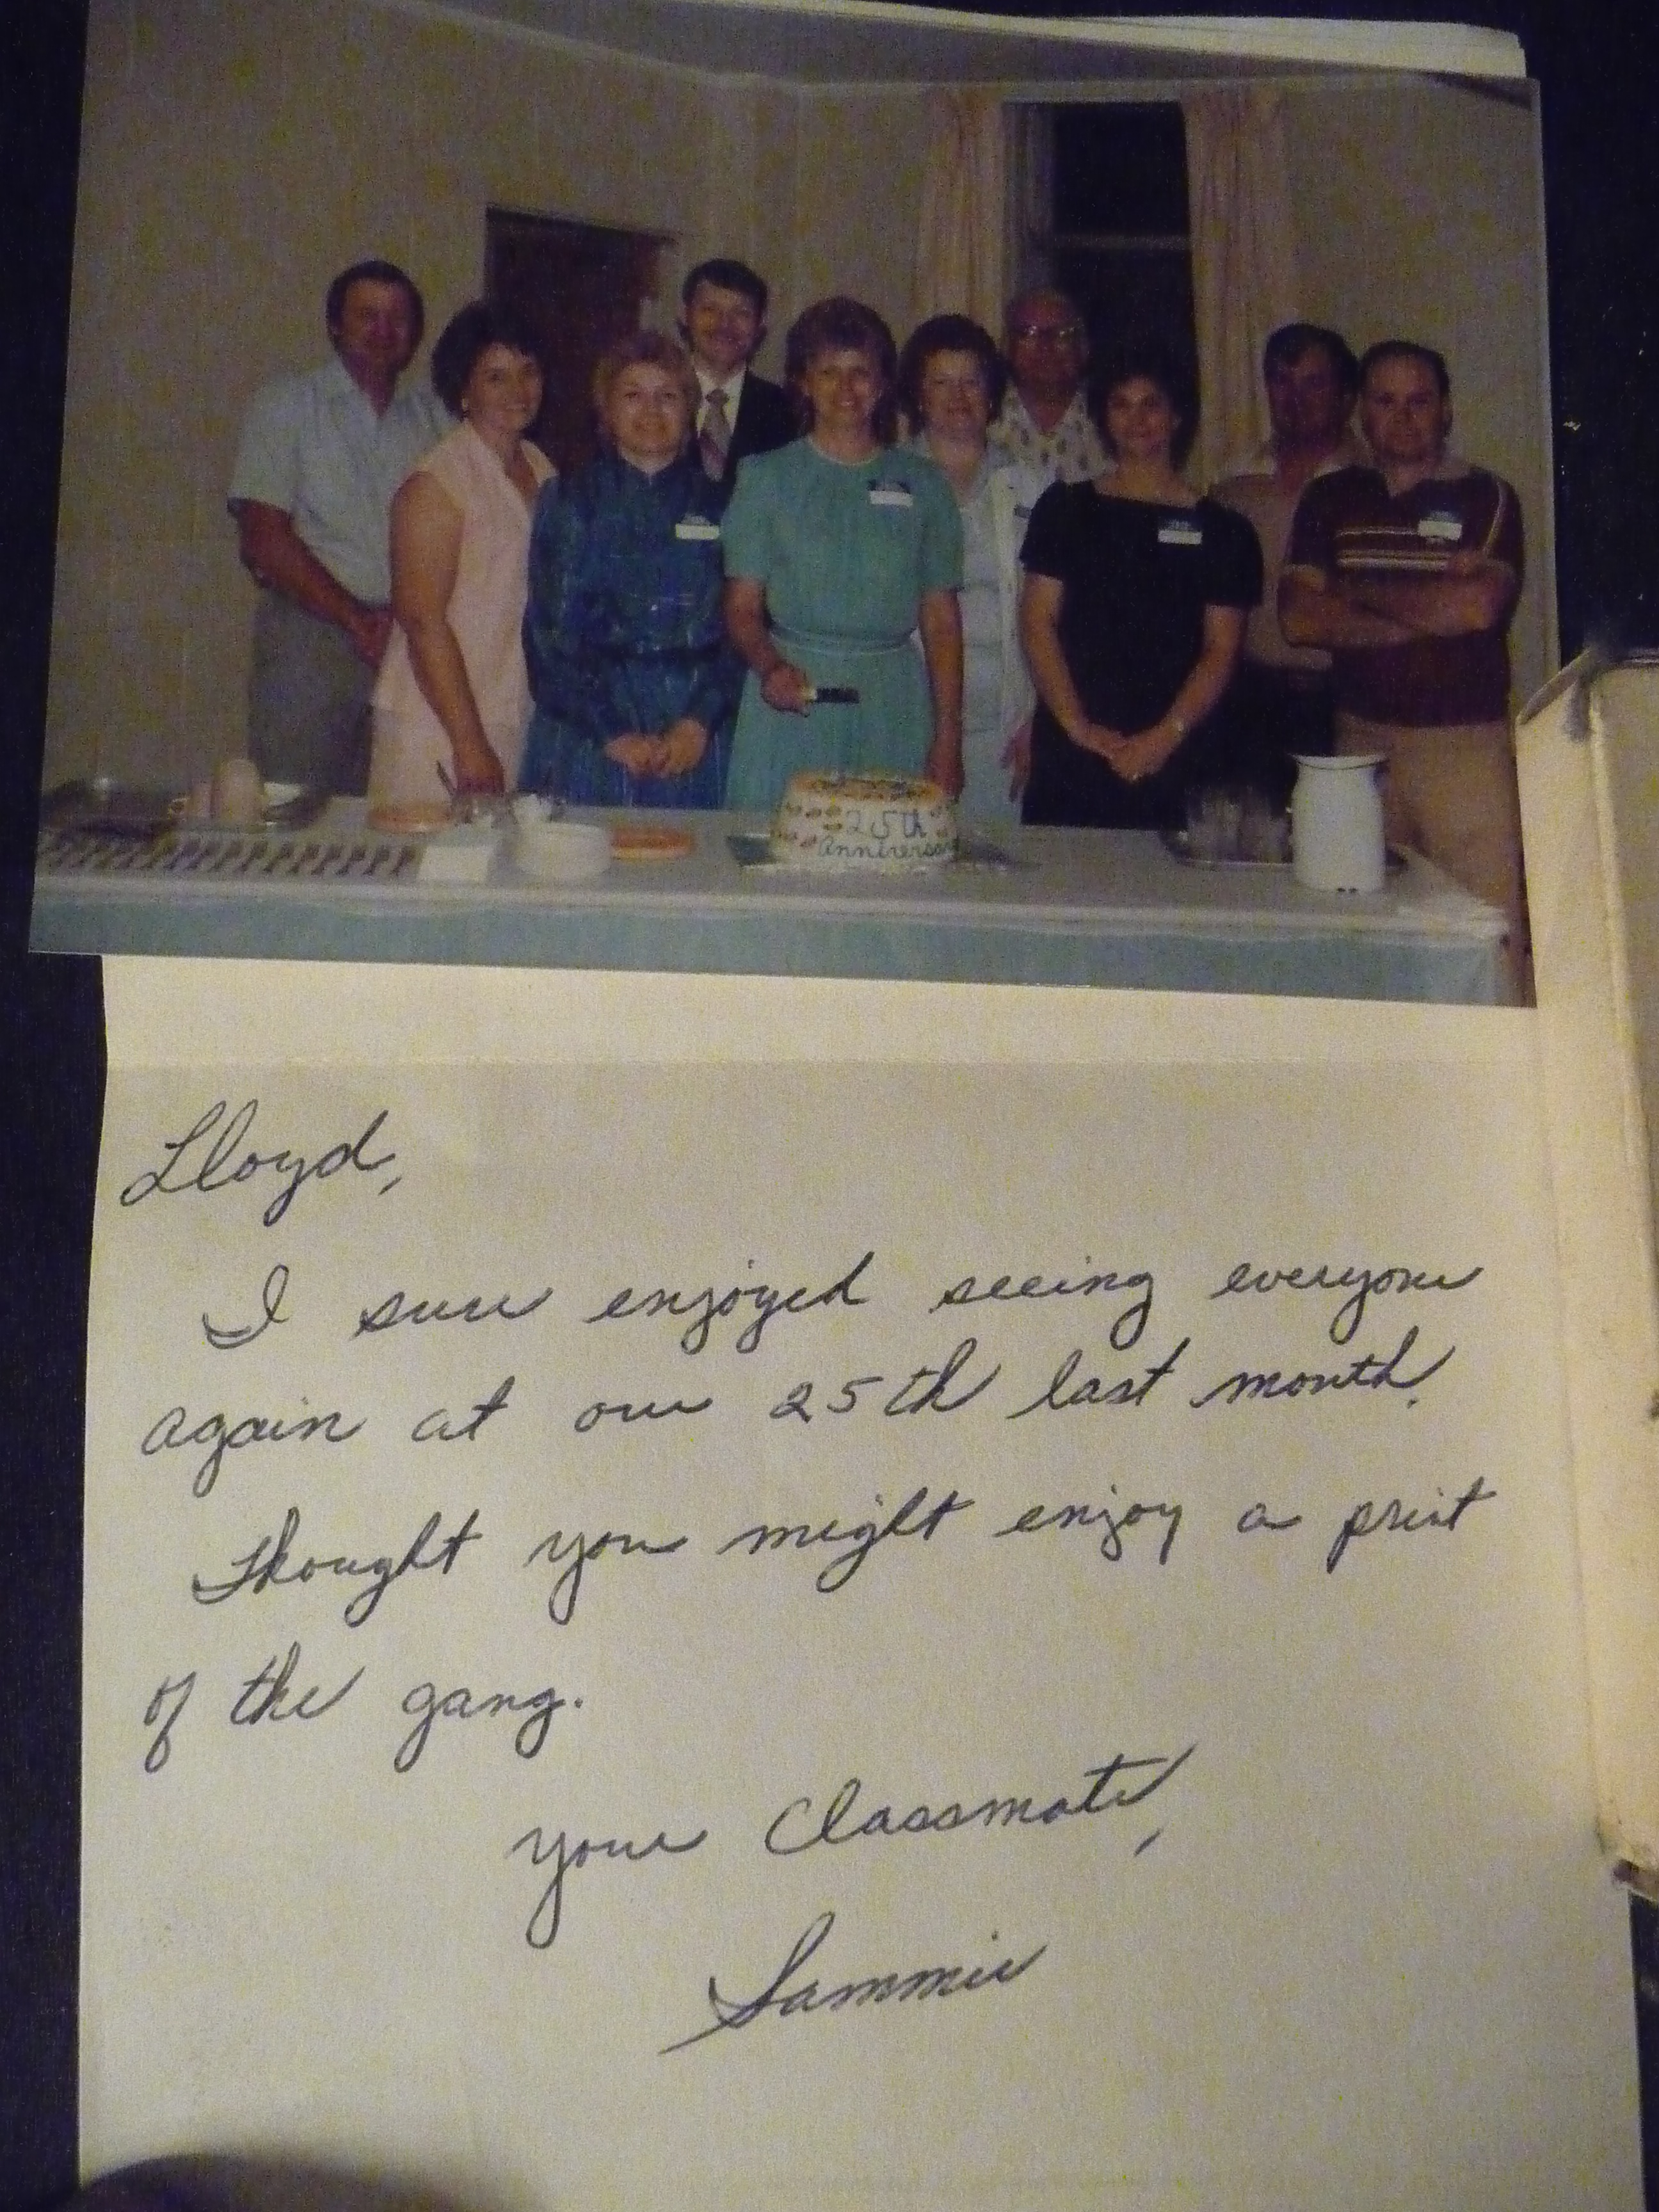 25th
Anniversary
Lloyd,
I sure enjoyed seeing everyone
again at our 25th last month.
Thought you might enjoy a print
of the gang.
Your Classmate,
Sammie